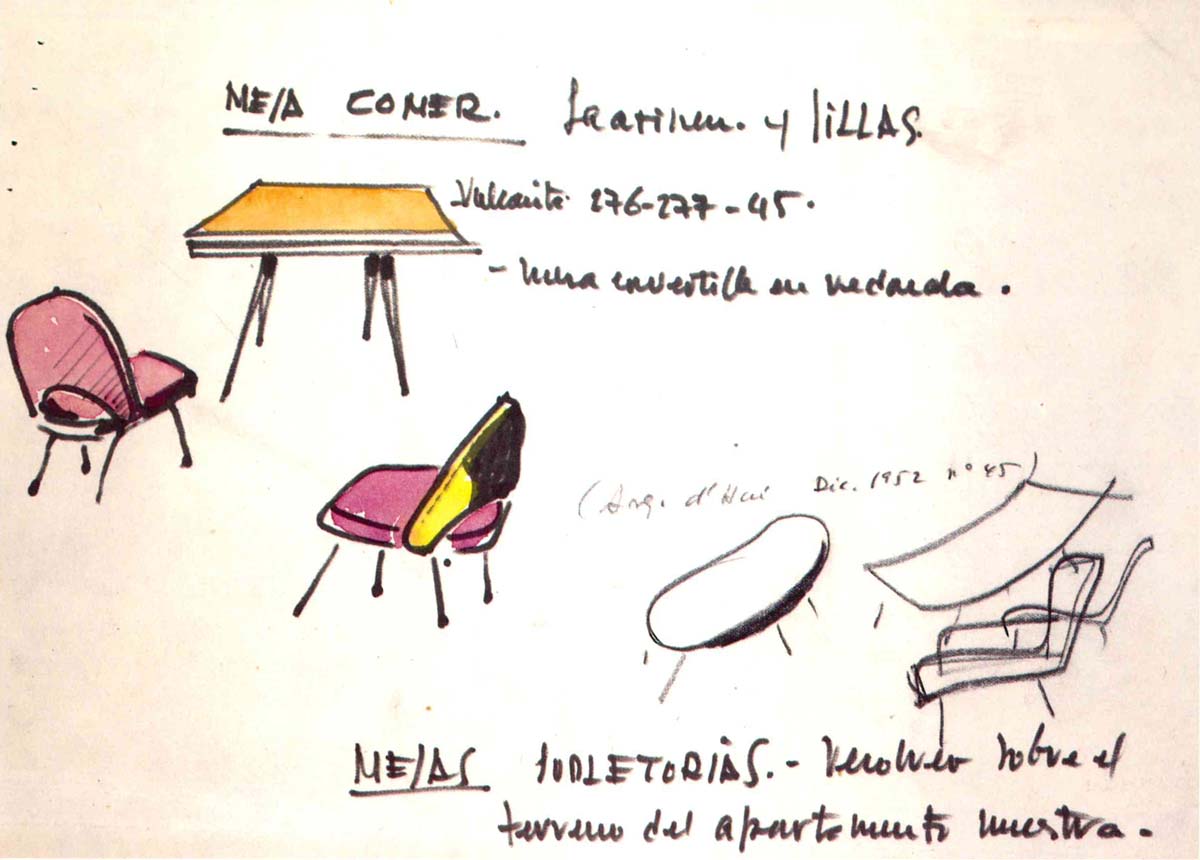 MESA COMER. Saarinen. y SILLAS.
Vulcanita 276-277-45.
- mesa convertible en redonda.
(Arq. d'Hui Dic. 1952 nº 45)
MESAS SUPLETORIAS. - Resolver sobre el
terreno del apartamento muestra.